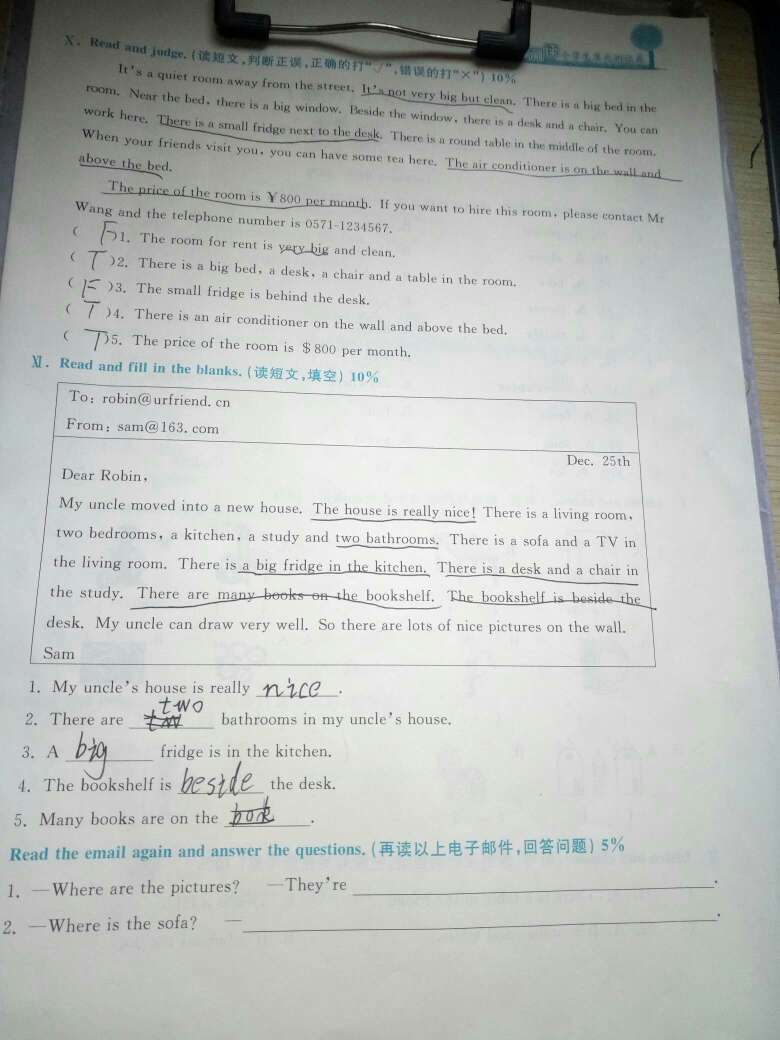 X. Read and judge. (读短文,判断正误,正确的打“√”,错误的打“×”) 10%
It's a quiet room away from the street. It's not very big but clean. There is a big bed in the
room. Near the bed, there is a big window. Beside the window, there is a desk and a chair. You can
work here. There is a small fridge next to the desk. There is a round table in the middle of the room.
When your friends visit you, you can have some tea here. The air conditioner is on the wall and
above the bed.
The price of the room is ¥800 per month. If you want to hire this room, please contact Mr
Wang and the telephone number is 0571-1234567.
( F )1. The room for rent is very big and clean.
( T )2. There is a big bed, a desk, a chair and a table in the room.
( F )3. The small fridge is behind the desk.
( T )4. There is an air conditioner on the wall and above the bed.
( T )5. The price of the room is $800 per month.
XI. Read and fill in the blanks. (读短文,填空) 10%
To: robin@urfriend.cn
From: sam@163.com
Dec. 25th
Dear Robin,
My uncle moved into a new house. The house is really nice! There is a living room,
two bedrooms, a kitchen, a study and two bathrooms. There is a sofa and a TV in
the living room. There is a big fridge in the kitchen. There is a desk and a chair in
the study. There are many books on the bookshelf. The bookshelf is beside the
desk. My uncle can draw very well. So there are lots of nice pictures on the wall.
Sam
1. My uncle's house is really nice.
2. There are two bathrooms in my uncle's house.
3. A big fridge is in the kitchen.
4. The bookshelf is beside the desk.
5. Many books are on the book.
Read the email again and answer the questions. (再读以上电子邮件,回答问题) 5%
1. —Where are the pictures? —They're ____.
2. —Where is the sofa? —____.